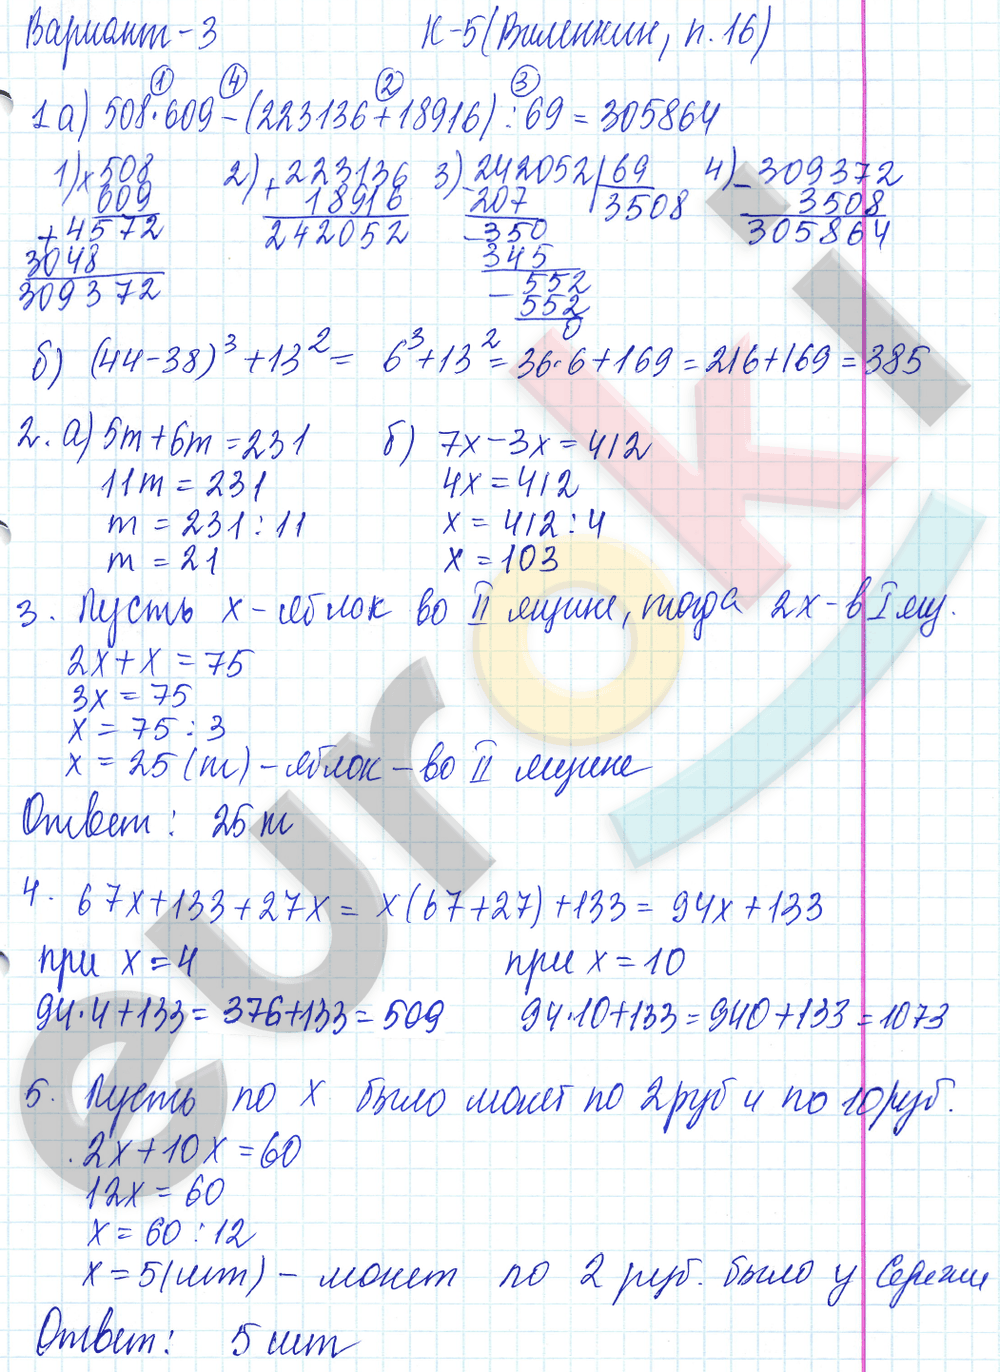 Вариант-3 К-5 (Виленкин, п.16)
① ④ ② ③
1 а) 508·609-(223136+18916):69=305864
1) × 508 2) + 223136 3) - 242052 | 69 4) - 309372
609 18916 207 3508 3508
+ 4572 242052 - 350 305864
3048 345
309372 - 552
552
0
б) (44-38)³+13²= 6³+13²=36·6+169=216+169=385
2. а) 5m+6m=231 б) 7x-3x=412
11m=231 4x=412
m=231:11 x=412:4
m=21 x=103
3. Пусть x-яблок во II ящике, тогда 2x-в I ящ.
2x+x=75
3x=75
x=75:3
x=25 (ш)-яблок-во II ящике
Ответ: 25 ш
4. 67x+133+27x= x(67+27)+133= 94x+133
при x=4 при x=10
94·4+133=376+133=509 94·10+133=940+133=1073
5. Пусть по x было монет по 2 руб и по 10 руб.
2x+10x=60
12x=60
x=60:12
x=5(шт)- монет по 2 руб. было у Сережи
Ответ: 5 шт
euroki